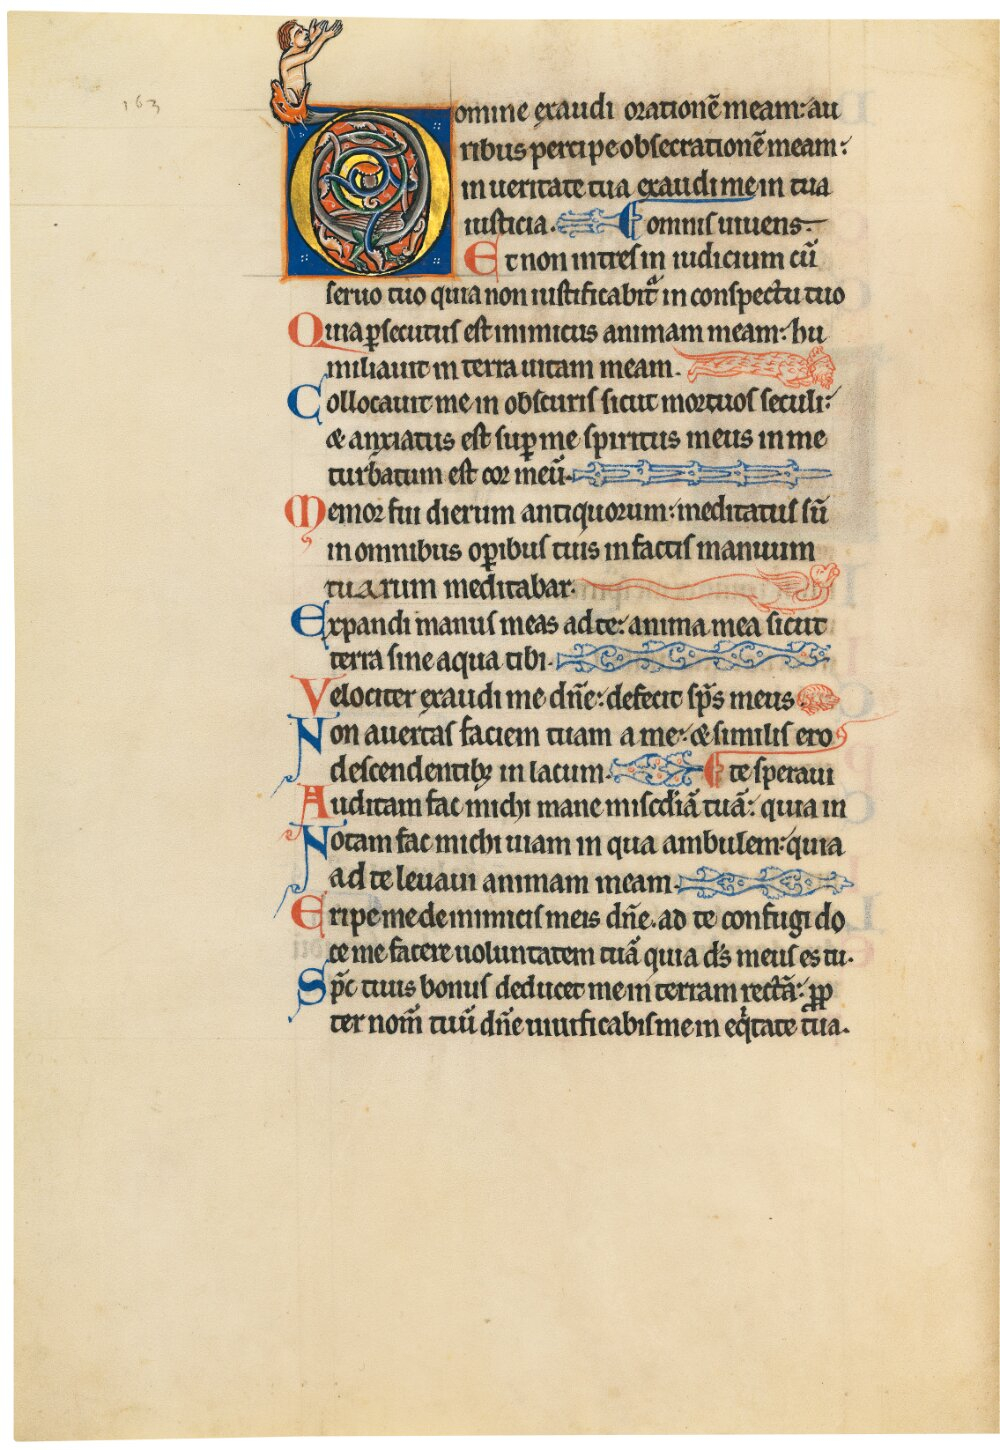 163
Domine exaudi orationē meam: au
ribus percipe obsecrationē meam:
in ueritate tua exaudi me in tua
iusticia. omnis uiuens.
Et non intres in iudicium cū
seruo tuo quia non iustificabit̃ in conspectu tuo
Quia ꝑsecutus est inimicus animam meam: hu
miliauit in terra uitam meam.
Collocauit me in obscuris sicut mortuos seculi:
& anxiatus est suꝑ me spiritus meus in me
turbatum est cor meū.
Memor fui dierum antiquorum: meditatus sū
in omnibus oꝑibus tuis in factis manuum
tuarum meditabar.
Expandi manus meas ad te: anima mea sicut
terra sine aqua tibi.
Velociter exaudi me dn̄e: defecit sp̄s meus
Non auertas faciem tuam a me: & similis ero
descendentibꝫ in lacum. te speraui
Auditam fac michi mane mis̄c̄diā tuā: quia in
Notam fac michi uiam in qua ambulem: quia
ad te leuaui animam meam.
Eripe me de inimicis meis dn̄e. ad te confugi do
ce me facere uoluntatem tuā quia d̄s meus es tu.
Sp̄c tuus bonus deducet me in terram rectā: ꝓp
ter nom̄ tuū dn̄e uiuificabis me in eq̇tate tua.